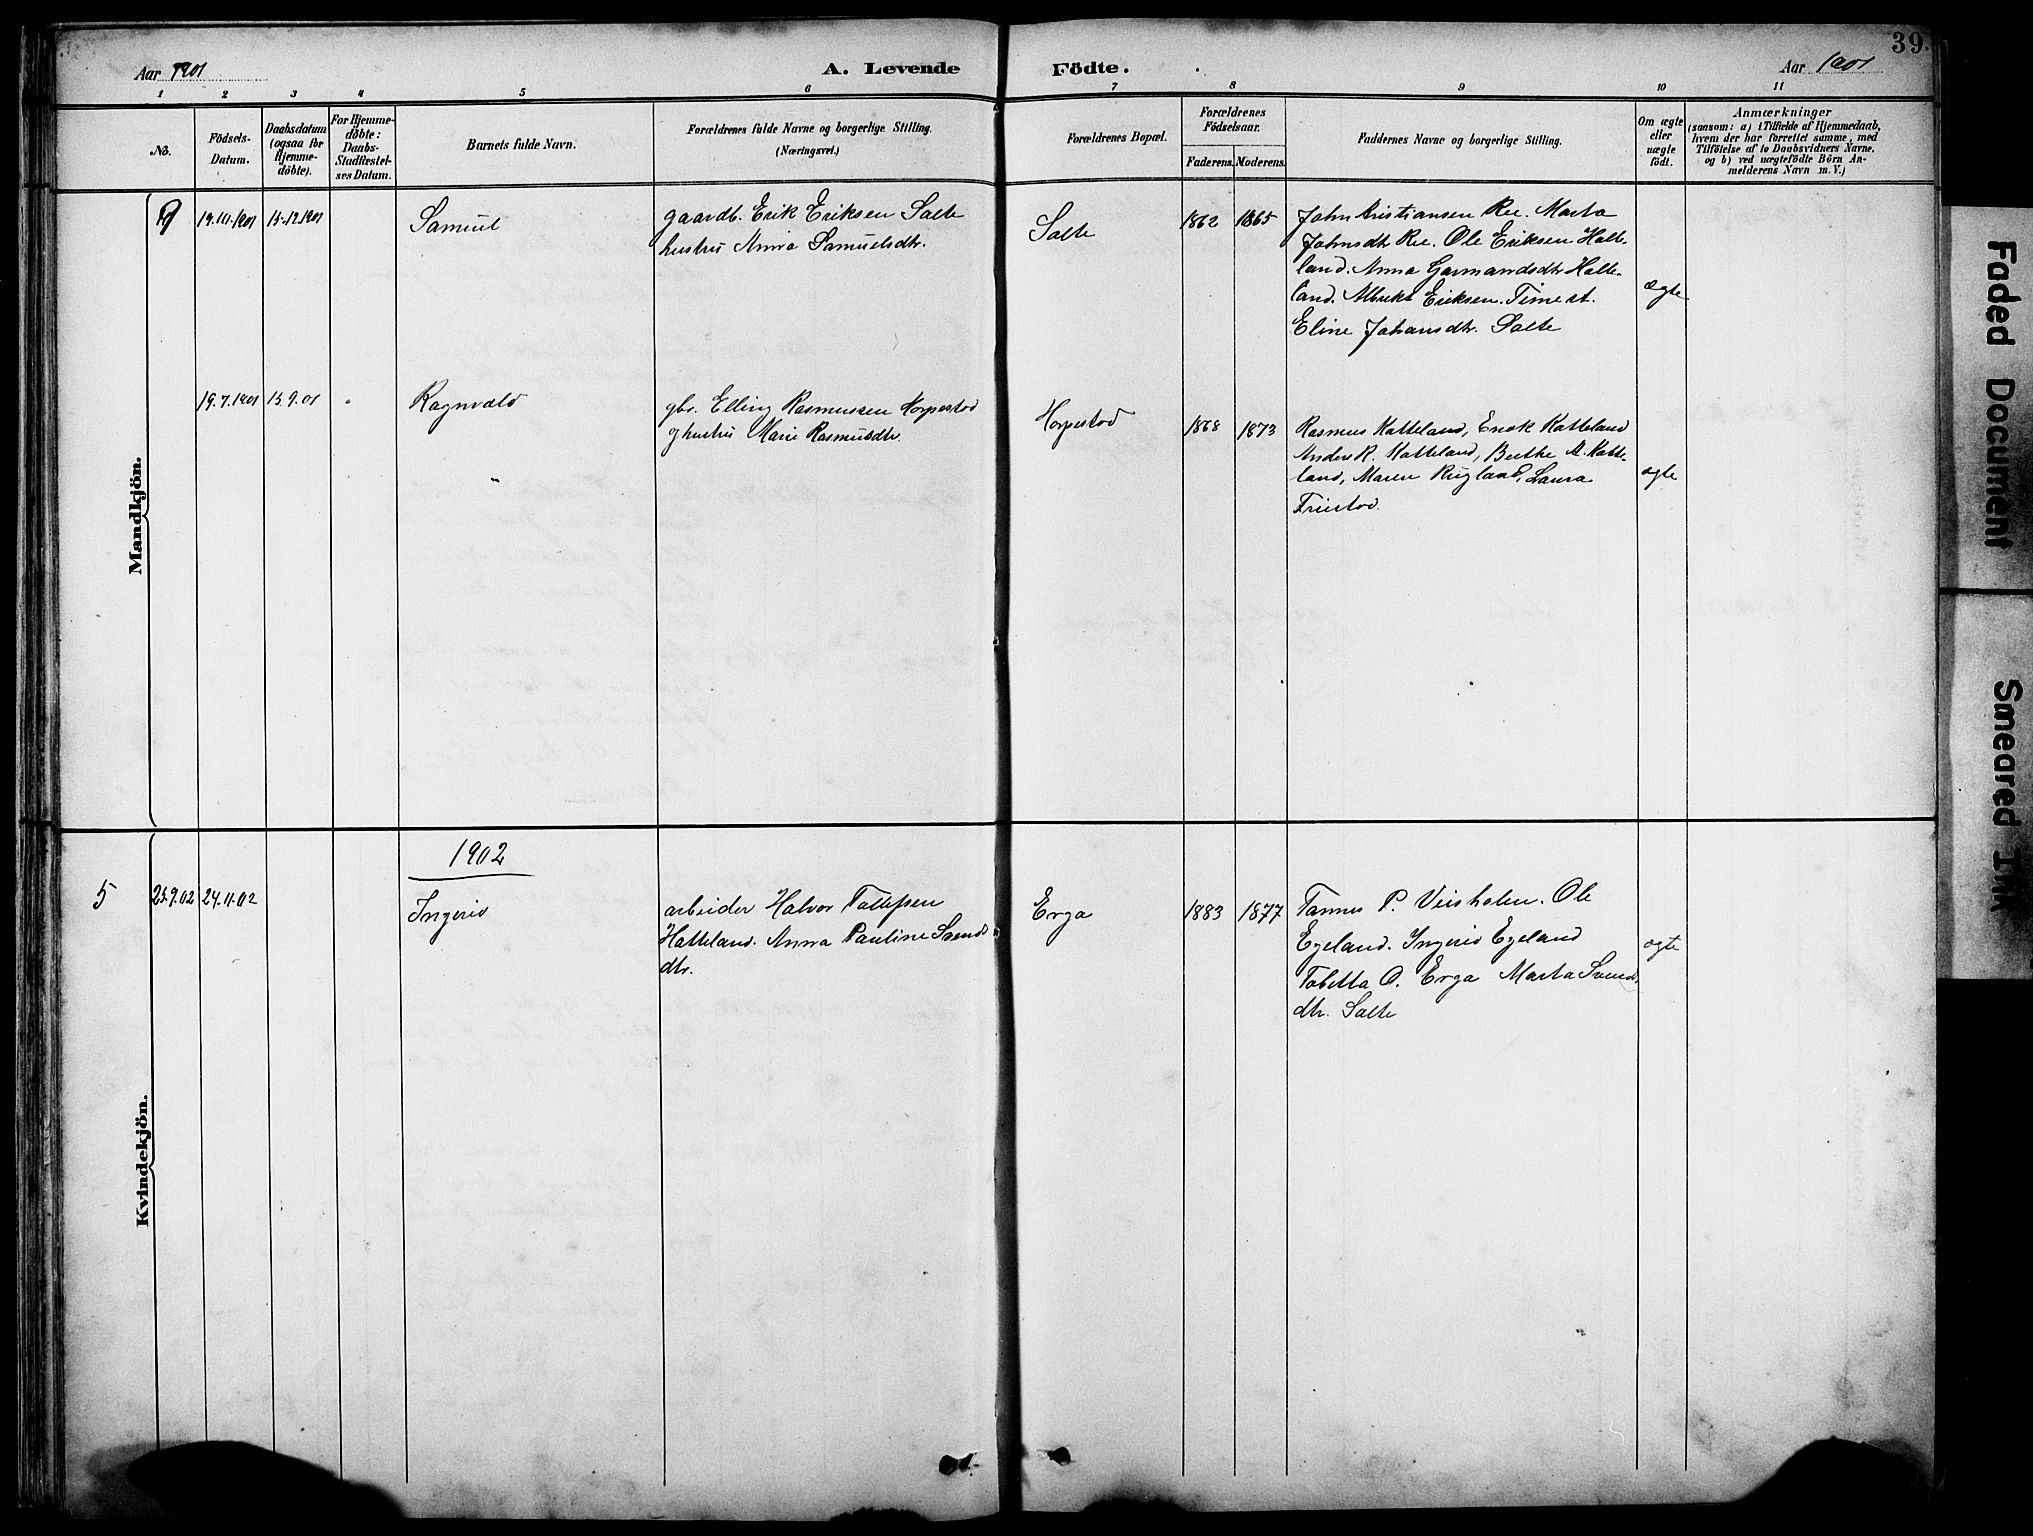 39.
Aar 1901
A. Levende Födte.
Aar 1901
1 2 3 4 5 6 7 8 9 10 11
No.
Födsels-
Datum.
Daabsdatum
(ogsaa for
Hjemme-
döbte).
For Hjemme-
döbte:
Daabs-
Stadfæstel-
ses Datum.
Barnets fulde Navn.
Forældrenes fulde Navne og borgerlige Stilling.
(Næringsvei.)
Forældrenes Bopæl.
Forældrenes
Födselsaar.
Faderens. Moderens.
Faddernes Navne og borgerlige Stilling.
Om ægte
eller
uægte
födt.
Anmærkninger
(saasom: a) i Tilfælde af Hjemmedaab,
hvem der har forrettet samme, med
Tilföielse af to Daabsvidners Navne,
og b) ved uægtefödte Börn An-
melderens Navn m. V.)
Mandkjön.
9
19.10.1901
15.12.1901
Samuel
gaardb. Erik Eriksen Salte
hustru Anna Samuelsdtr.
Salte
1862
1865
John Kristiansen Ree. Marta
Johnsdtr Ree. Ole Eriksen Hatte-
land. Anna Garmandsdtr Hatte-
land. Albrekt Eriksen. Time st.
Eline Johansdtr. Salte
ægte
19.7.1901
15.9.01
Ragnvald
gbr. Elling Rasmussen Horpestad
og hustru Marie Rasmusdtr.
Horpestad
1868
1873
Rasmus Hatteland, Enok Hatteland
Anders R. Hatteland, Berthe M. Hatte-
land, Maren Rugland, Laura
Friestad.
ægte
Kvindekjön.
1902
5
25.9.02
24.11.02
Ingerid
arbeider Halvor Tollefsen
Hatteland. Anna Pauline Svends
dtr.
Erga
1883
1877
Tannes P. Veisholen. Ole
Egeland. Ingerid Egeland
Tobetta O. Erga Marta Svend
dtr. Salte
ægte
Faded Document
Smeared Ink